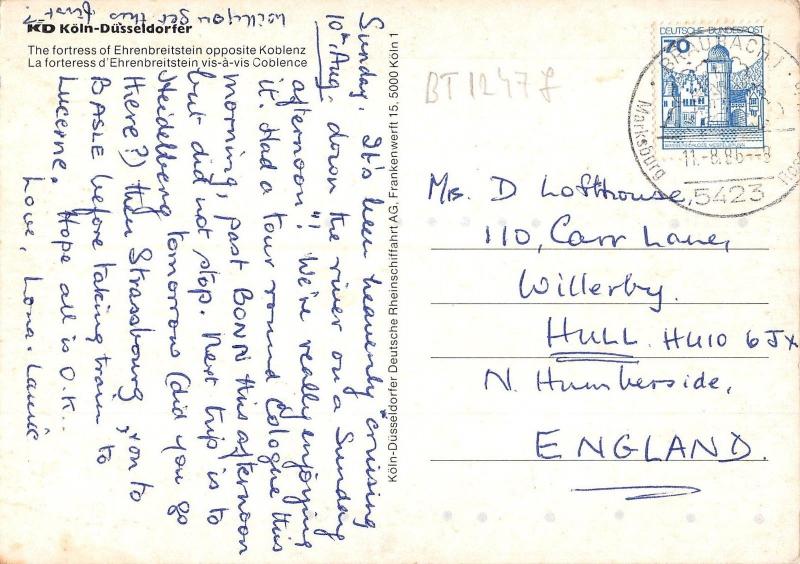 will you get this first?
KD Köln-Düsseldorfer
The fortress of Ehrenbreitstein opposite Koblenz
La forteress d'Ehrenbreitstein vis-à-vis Coblence
Sunday,
10th Aug.
It's been heavenly cruising
down the river on a Sunday
afternoon"! We're really enjoying
it. Had a tour round Cologne this
morning, past BONN this afternoon
but did not stop. Next trip is to
Heidelberg tomorrow (did you go
there?) then Strassbourg, & on to
BASLE before taking train to
Lucerne. Hope all is O.K..
Love, Lona.
Köln-Düsseldorfer Deutsche Rheinschiffahrt AG, Frankenwerft 15, 5000 Köln 1
BT 1247 f
DEUTSCHE BUNDESPOST
70
BRAUBACH
Marksburg
11.-8.86--8
5423
Mrs. D Lofthouse,
110, Carr Lane,
Willerby.
HULL. HU10 6JX
N. Humberside,
ENGLAND.